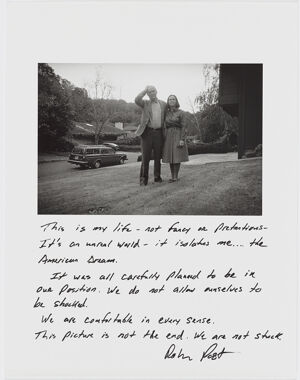 This is my life - not fancy or Pretentious -
It's an unreal world - it isolates me.... the
American Dream.
It was all carefully planned to be in
our Position. We do not allow ourselves to
be shocked.
We are comfortable in every sense.
This Picture is not the end. We are not stuck
Robin Post